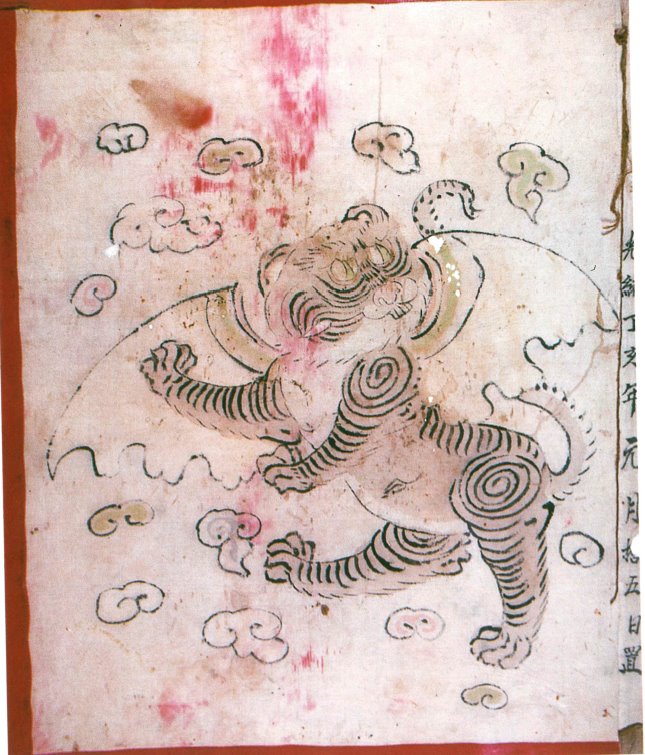 光緒丁亥年元月拾五日置